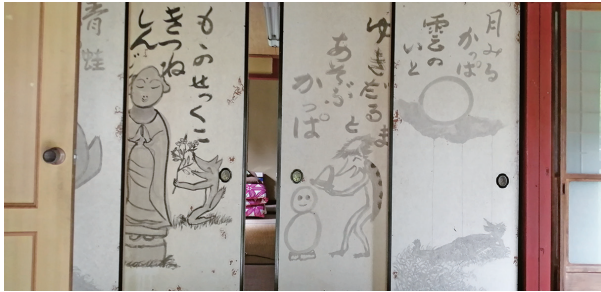 月みる
かっぱ
雲の
いと
ゆきだるま
と
あそぶ
かっぱ
もゝのせっくに
きつね
しん
青蛙